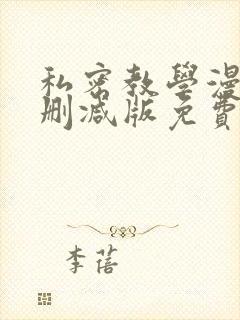 私密教學漫
刪減版免費
李蓓